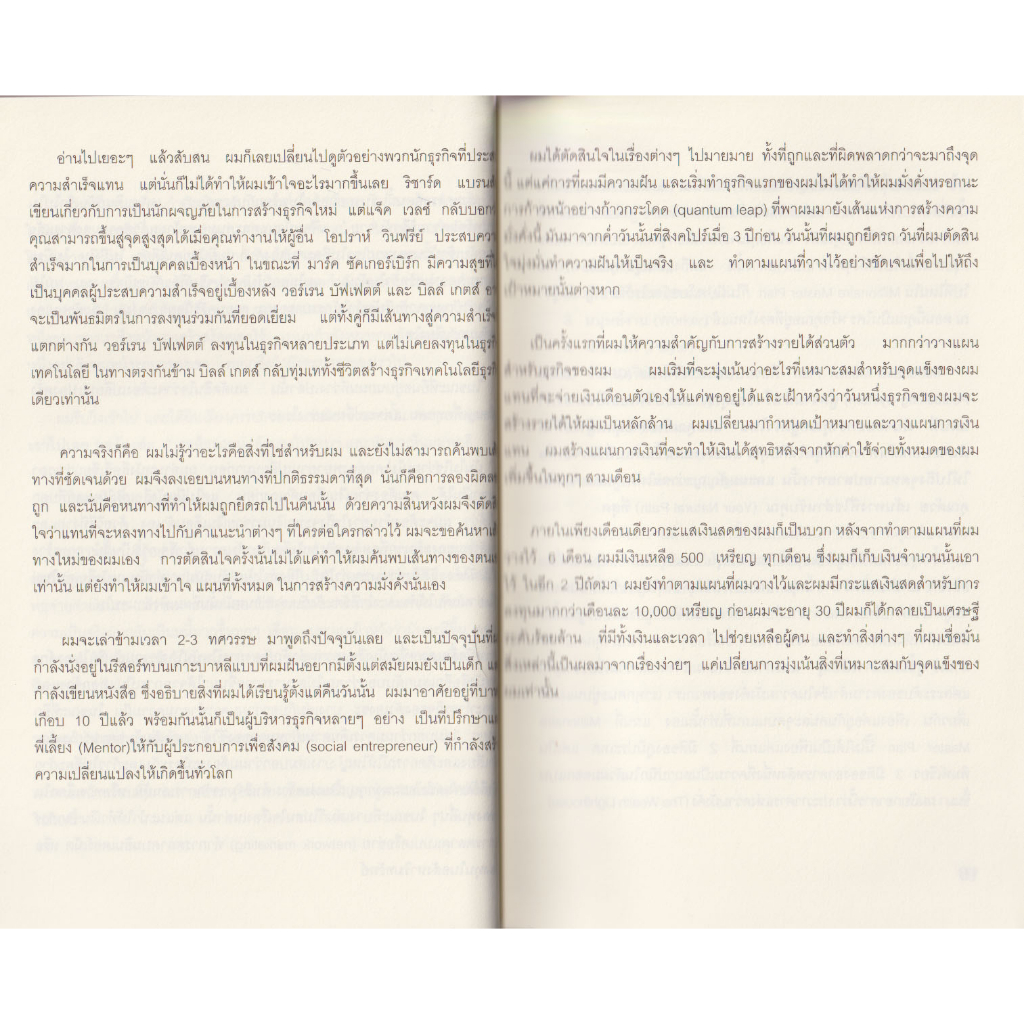 อ่านไปเยอะๆ แล้วสับสน ผมก็เลยเปลี่ยนไปดูตัวอย่างพวกนักธุรกิจที่ประส
ความสำเร็จแทน แต่นั่นก็ไม่ได้ทำให้ผมเข้าใจอะไรมากขึ้นเลย ริชาร์ด แบรนส์
เขียนเกี่ยวกับการเป็นนักผจญภัยในการสร้างธุรกิจใหม่ แต่แจ็ค เวลช์ กลับบอก
คุณสามารถขึ้นสู่จุดสูงสุดได้เมื่อคุณทำงานให้ผู้อื่น โอปราห์ วินฟรีย์ ประสบควา
สำเร็จมากในการเป็นบุคคลเบื้องหน้า ในขณะที่ มาร์ค ซัคเกอร์เบิร์ก มีความสุขที่
เป็นบุคคลผู้ประสบความสำเร็จอยู่เบื้องหลัง วอร์เรน บัฟเฟตต์ และ บิลล์ เกตส์
จะเป็นพันธมิตรในการลงทุนร่วมกันที่ยอดเยี่ยม แต่ทั้งคู่ก็มีเส้นทางสู่ความสำเร็จ
แตกต่างกัน วอร์เรน บัฟเฟตต์ ลงทุนในธุรกิจหลายประเภท แต่ไม่เคยลงทุนในธุรกิ
เทคโนโลยี ในทางตรงกันข้าม บิลล์ เกตส์ กลับทุ่มเททั้งชีวิตสร้างธุรกิจเทคโนโลยีธุรกิ
เดียวเท่านั้น
ความจริงก็คือ ผมไม่รู้ว่าอะไรคือสิ่งที่ใช่สำหรับผม และยังไม่สามารถค้นพบเส้
ทางที่ชัดเจนด้วย ผมจึงลงเอยบนหนทางที่ปกติธรรมดาที่สุด นั่นก็คือการลองผิดล
ถูก และนั่นคือหนทางที่ทำให้ผมถูกยึดรถไปในคืนนั้น ด้วยความสิ้นหวังผมจึงตัดสิ
ใจว่าแทนที่จะหลงทางไปกับคำแนะนำต่างๆ ที่ใครต่อใครกล่าวไว้ ผมจะขอค้นหาเ
ทางใหม่ของผมเอง การตัดสินใจครั้งนั้นไม่ได้แค่ทำให้ผมค้นพบเส้นทางของตนเ
เท่านั้น แต่ยังทำให้ผมเข้าใจ แผนที่ทั้งหมด ในการสร้างความมั่งคั่งนั่นเอง
ผมจะเล่าข้ามเวลา 2-3 ทศวรรษ มาพูดถึงปัจจุบันเลย และเป็นปัจจุบันที่
กำลังนั่งอยู่ในรีสอร์ทบนเกาะบาหลีแบบที่ผมฝันอยากมีตั้งแต่สมัยผมยังเป็นเด็ก
กำลังเขียนหนังสือ ซึ่งอธิบายสิ่งที่ผมได้เรียนรู้ตั้งแต่คืนวันนั้น ผมมาอาศัยอยู่ที่บา
เกือบ 10 ปีแล้ว พร้อมกันนั้นก็เป็นผู้บริหารธุรกิจหลายๆ อย่าง เป็นที่ปรึกษา
พี่เลี้ยง (Mentor)ให้กับผู้ประกอบการเพื่อสังคม (social entrepreneur) ที่กำลังสร้
ความเปลี่ยนแปลงให้เกิดขึ้นทั่วโลก
ผมได้ตัดสินใจในเรื่องต่างๆ ไปมายมาย ทั้งที่ถูกและที่ผิดพลาดกว่าจะมาถึงจุด
นี้ แต่แค่การที่ผมมีความฝัน และเริ่มทำธุรกิจแรกของผมไม่ได้ทำให้ผมมั่งคั่งหรอกนะ
การก้าวหน้าอย่างก้าวกระโดด (quantum leap) ที่พาผมมายังเส้นแห่งการสร้างความ
มั่งคั่งนี้ มันมาจากค่ำวันนั้นที่สิงคโปร์เมื่อ 3 ปีก่อน วันนั้นที่ผมถูกยึดรถ วันที่ผมตัดสิน
ใจมุ่งมั่นทำความฝันให้เป็นจริง และ ทำตามแผนที่วางไว้อย่างชัดเจนเพื่อไปให้ถึง
เป้าหมายนั้นต่างหาก
เป็นครั้งแรกที่ผมให้ความสำคัญกับการสร้างรายได้ส่วนตัว มากกว่าวางแผน
สำหรับธุรกิจของผม ผมเริ่มที่จะมุ่งเน้นว่าอะไรที่เหมาะสมสำหรับจุดแข็งของผม
แทนที่จะจ่ายเงินเดือนตัวเองให้แค่พออยู่ได้และเฝ้าหวังว่าวันหนึ่งธุรกิจของผมจะ
สร้างรายได้ให้ผมเป็นหลักล้าน ผมเปลี่ยนมากำหนดเป้าหมายและวางแผนการเงิน
แทน ผมสร้างแผนการเงินที่จะทำให้เงินได้สุทธิหลังจากหักค่าใช้จ่ายทั้งหมดของผม
เพิ่มขึ้นในทุกๆ สามเดือน
ภายในเพียงเดือนเดียวกระแสเงินสดของผมก็เป็นบวก หลังจากทำตามแผนที่ผม
วางไว้ 6 เดือน ผมมีเงินเหลือ 500 เหรียญ ทุกเดือน ซึ่งผมก็เก็บเงินจำนวนนั้นเอา
ไว้ ในอีก 2 ปีถัดมา ผมยังทำตามแผนที่ผมวางไว้และผมมีกระแสเงินสดสำหรับการ
ลงทุนมากกว่าเดือนละ 10,000 เหรียญ ก่อนผมจะอายุ 30 ปีผมก็ได้กลายเป็นเศรษฐี
ระดับร้อยล้าน ที่มีทั้งเงินและเวลา ไปช่วยเหลือผู้คน และทำสิ่งต่างๆ ที่ผมเชื่อมั่น
สิ่งเหล่านี้เป็นผลมาจากเรื่องง่ายๆ แค่เปลี่ยนการมุ่งเน้นสิ่งที่เหมาะสมกับจุดแข็งของ
ผมเท่านั้น